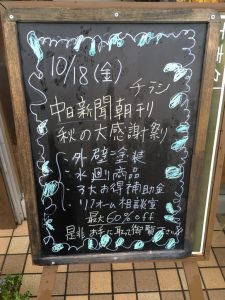 10/18(金)
チラシ
中日新聞朝刊
秋の大感謝祭り
・外壁塗装
・水廻り商品
・3大お得補助金
・リフォーム相談室
最大60%off
是非お手に取って御覧下さい